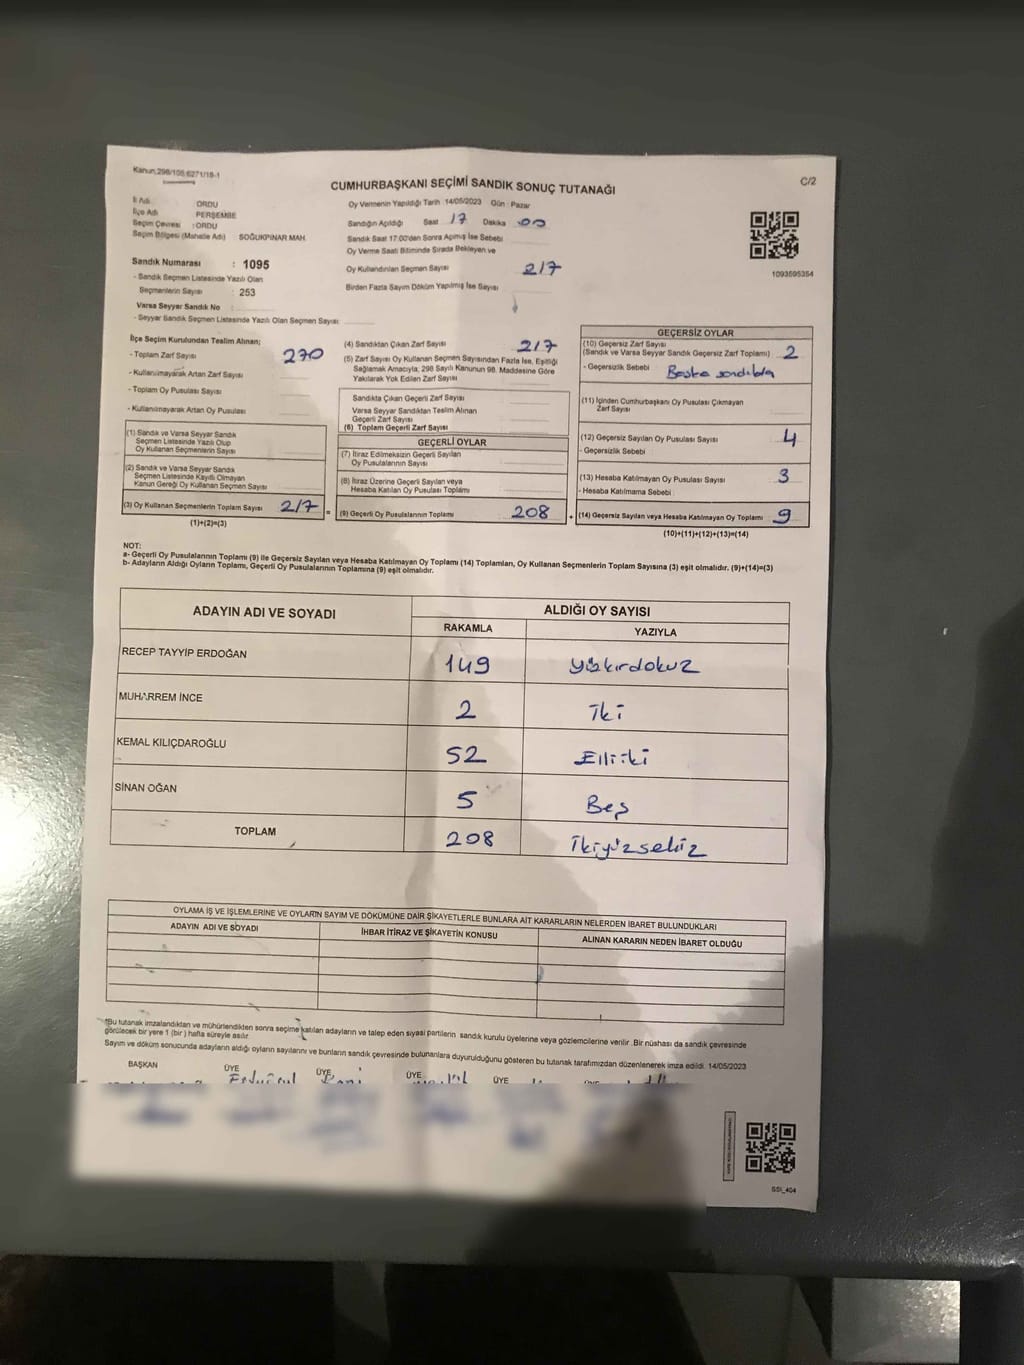 Kanun,298/105;6271/18-1
C/2
CUMHURBAŞKANI SEÇİMİ SANDIK SONUÇ TUTANAĞI
İl Adı ORDU
İlçe Adı PERŞEMBE
Seçim Çevresi : ORDU
Seçim Bölgesi (Mahalle Adı) SOĞUKPINAR MAH.
Sandık Numarası : 1095
- Sandık Seçmen Listesinde Yazılı Olan
Seçmenlerin Sayısı : 253
Varsa Seyyar Sandık No :
- Seyyar Sandık Seçmen Listesinde Yazılı Olan Seçmen Sayısı
Oy Vermenin Yapıldığı Tarih 14/05/2023 Gün : Pazar
Sandığın Açıldığı Saat 17 Dakika 00
Sandık Saat 17:00'den Sonra Açılmış İse Sebebi
Oy Verme Saati Bitiminde Sırada Bekleyen ve
Oy Kullandırılan Seçmen Sayısı 217
Birden Fazla Sayım Döküm Yapılmış İse Sayısı
1093595354
İlçe Seçim Kurulundan Teslim Alınan;
- Toplam Zarf Sayısı 270
- Kullanılmayarak Artan Zarf Sayısı
- Toplam Oy Pusulası Sayısı
- Kullanılmayarak Artan Oy Pusulası
(1) Sandık ve Varsa Seyyar Sandık
Seçmen Listesinde Yazılı Olup
Oy Kullanan Seçmenlerin Sayısı
(2) Sandık ve Varsa Seyyar Sandık
Seçmen Listesinde Kayıtlı Olmayan
Kanun Gereği Oy Kullanan Seçmen Sayısı
(3) Oy Kullanan Seçmenlerin Toplam Sayısı 217 =
(1)+(2)=(3)
(4) Sandıktan Çıkan Zarf Sayısı 217
(5) Zarf Sayısı Oy Kullanan Seçmen Sayısından Fazla İse, Eşitliği
Sağlamak Amacıyla, 298 Sayılı Kanunun 98. Maddesine Göre
Yakılarak Yok Edilen Zarf Sayısı
Sandıkta Çıkan Geçerli Zarf Sayısı
Varsa Seyyar Sandıktan Teslim Alınan
Geçerli Zarf Sayısı
(6) Toplam Geçerli Zarf Sayısı
GEÇERLİ OYLAR
(7) İtiraz Edilmeksizin Geçerli Sayılan
Oy Pusulalarının Sayısı
(8) İtiraz Üzerine Geçerli Sayılan veya
Hesaba Katılan Oy Pusulası Toplamı
(9) Geçerli Oy Pusulalarının Toplamı 208 +
GEÇERSİZ OYLAR
(10) Geçersiz Zarf Sayısı
(Sandık ve Varsa Seyyar Sandık Geçersiz Zarf Toplamı) 2
- Geçersizlik Sebebi Başka sandıkta
(11) İçinden Cumhurbaşkanı Oy Pusulası Çıkmayan
Zarf Sayısı
(12) Geçersiz Sayılan Oy Pusulası Sayısı 4
- Geçersizlik Sebebi
(13) Hesaba Katılmayan Oy Pusulası Sayısı 3
- Hesaba Katılmama Sebebi :
(14) Geçersiz Sayılan veya Hesaba Katılmayan Oy Toplamı 9
(10)+(11)+(12)+(13)=(14)
NOT:
a- Geçerli Oy Pusulalarının Toplamı (9) ile Geçersiz Sayılan veya Hesaba Katılmayan Oy Toplamı (14) Toplamları, Oy Kullanan Seçmenlerin Toplam Sayısına (3) eşit olmalıdır. (9)+(14)=(3)
b- Adayların Aldığı Oyların Toplamı, Geçerli Oy Pusulalarının Toplamına (9) eşit olmalıdır.
ADAYIN ADI VE SOYADI ALDIĞI OY SAYISI
RAKAMLA YAZIYLA
RECEP TAYYİP ERDOĞAN 149 yüzkırdokuz
MUHARREM İNCE 2 İki
KEMAL KILIÇDAROĞLU 52 Elliiki
SİNAN OĞAN 5 Beş
TOPLAM 208 İkiyüzsekiz
OYLAMA İŞ VE İŞLEMLERİNE VE OYLARIN SAYIM VE DÖKÜMÜNE DAİR ŞİKAYETLERLE BUNLARA AİT KARARLARIN NELERDEN İBARET BULUNDUKLARI
ADAYIN ADI VE SOYADI İHBAR İTİRAZ VE ŞİKAYETİN KONUSU ALINAN KARARIN NEDEN İBARET OLDUĞU
*Bu tutanak imzalandıktan ve mühürlendikten sonra seçime katılan adayların ve talep eden siyasi partilerin sandık kurulu üyelerine veya gözlemcilerine verilir. Bir nüshası da sandık çevresinde
görülecek bir yere 1 (bir) hafta süreyle asılır.
Sayım ve döküm sonucunda adayların aldığı oyların sayılarını ve bunların sandık çevresinde bulunanlara duyurulduğunu gösteren bu tutanak tarafımızdan düzenlenerek imza edildi. 14/05/2023
BAŞKAN ÜYE ÜYE ÜYE ÜYE
GSI_404